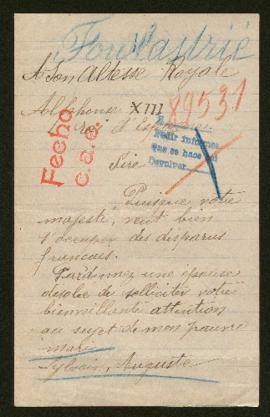 Foulastrié
A Son Altesse Royale
Alphonse XIII
89531
roi d'Esp
Pedir informes
que se hace
Devolver
Fecha
c.a.e.
Sire
Puisque votre
majesté, veut bien
s'occuper des disparus
francais.
Pardonnez une épouse
desolée de solliciter votre
bienveillante attention
au sujet de mon pauvre
mari
Sylvain, Auguste